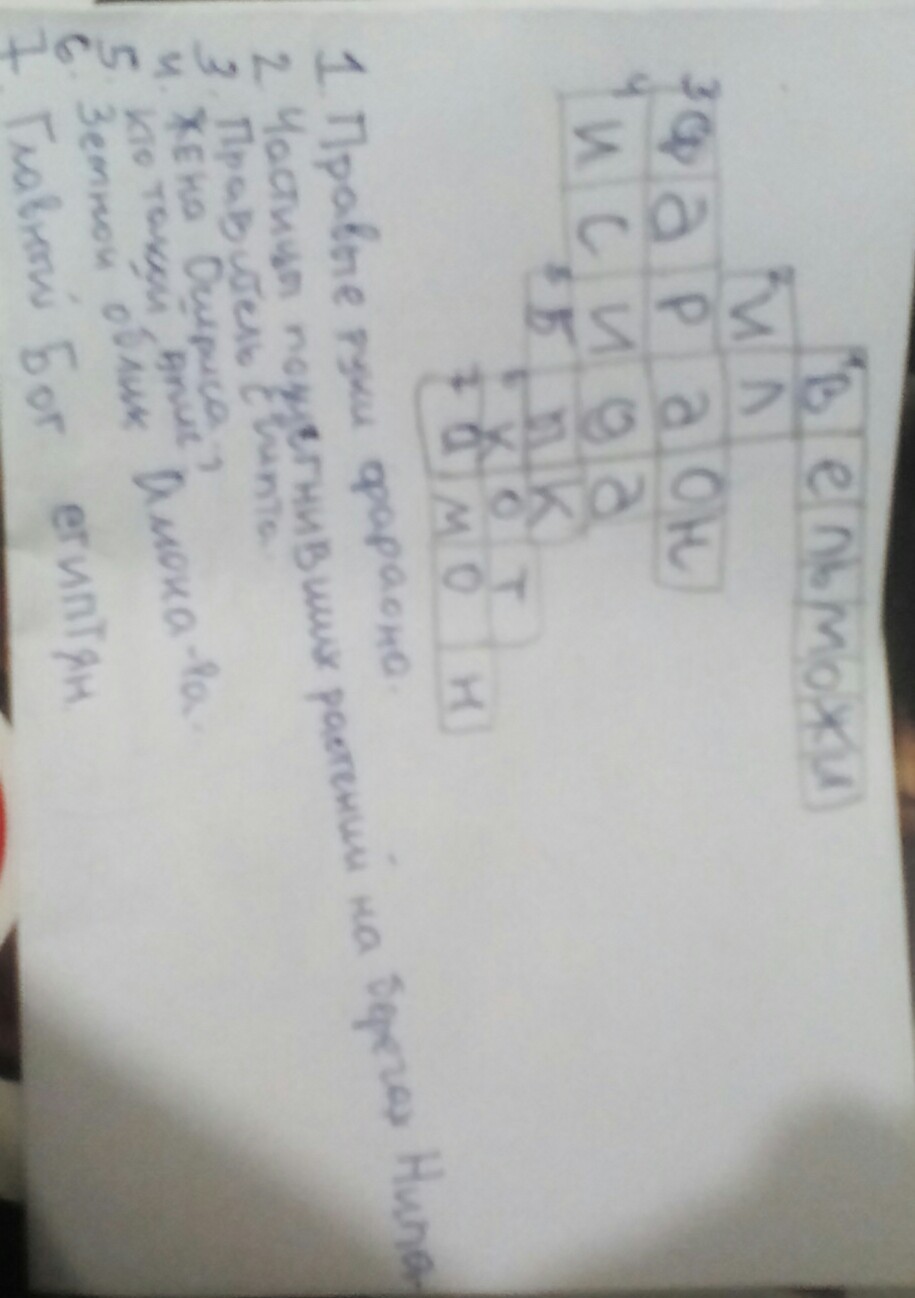 1 Вельможи
2 Ил
3 Фараон
4 Исида
5 Бык
6 Кот
7 Амон
1 Правые руки фараона.
2 Частицы подгнивших растений на берегах Нила.
3. Правитель Египта.
4. Жена Осириса?
5 Кто такой апис?
6. Земной облик Амона-Ра.
7. Главный Бог египтян